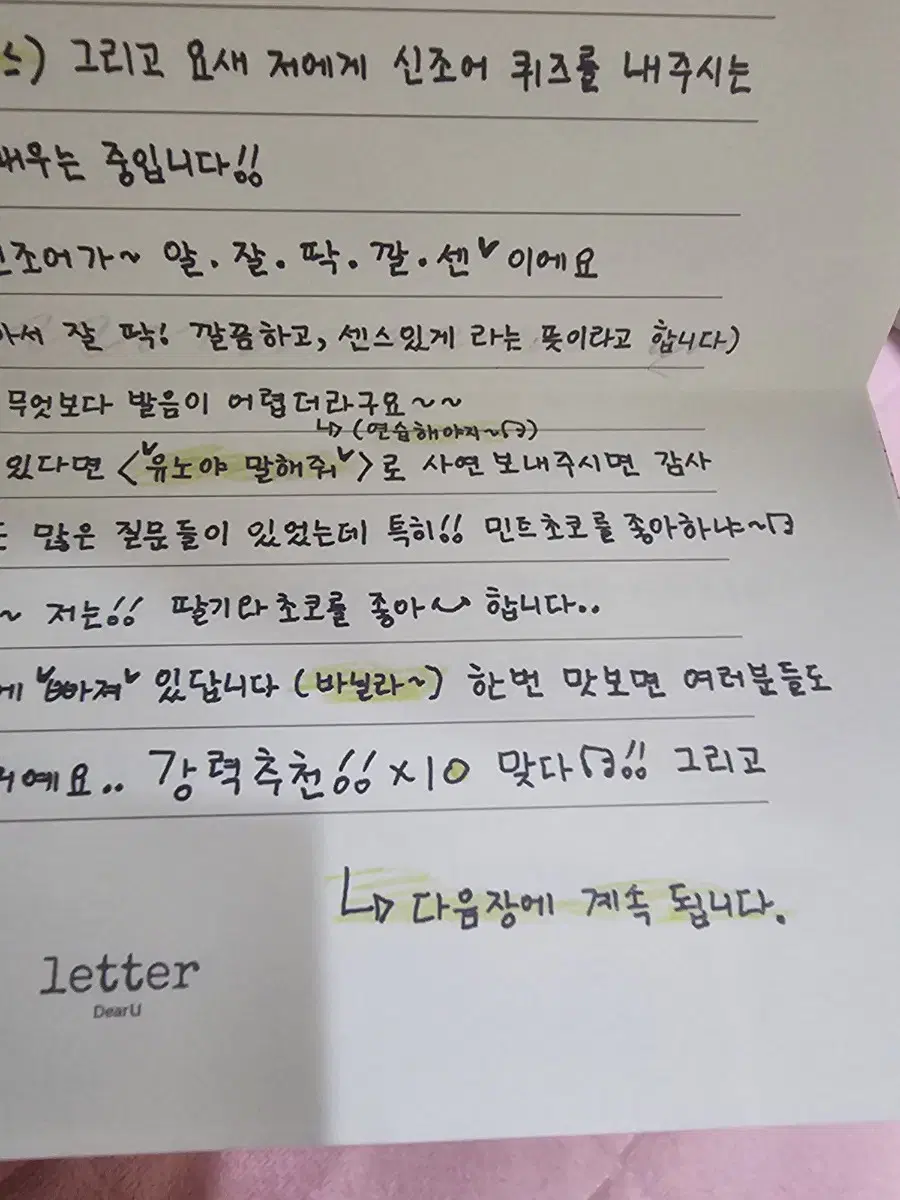 스) 그리고 요새 저에게 신조어 퀴즈를 내주시는
배우는 중입니다!!
신조어가~ 알.잘.딱.깔.센♥이에요
아서 잘 딱! 깔끔하고, 센스있게 라는 뜻이라고 합니다)
무엇보다 발음이 어렵더라구요~~
↳(연습해야지~ㅋ)
있다면 <♥유노야 말해줘♥>로 사연 보내주시면 감사
많은 질문들이 있었는데 특히!! 민트초코를 좋아하냐~ㅋ
~ 저는!! 딸기와 초코를 좋아~ 합니다..
에 ♥빠져♥ 있답니다 (바닐라~) 한번 맛보면 여러분들도
예요.. 강력추천!! ×10 맞다ㅋ!! 그리고
↳ 다음장에 계속 됩니다.
letter
DearU